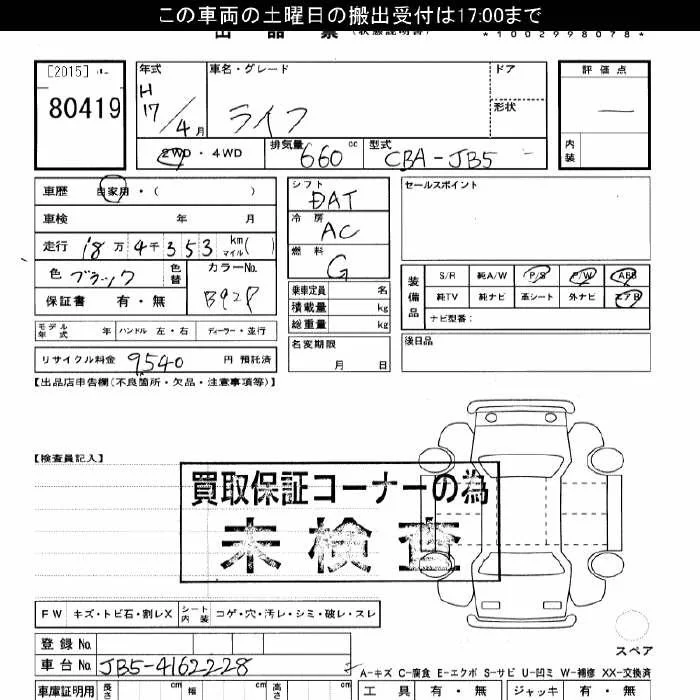 この車両の土曜日の搬出受付は17:00まで
出品票 (状態説明書) *1002998078*
[2015]
80419
年式 H17/4月
車名・グレード ライフ
ドア
形状
評価点 —
内装
2WD・4WD
排気量 660 cc
型式 CBA-JB5
車歴 自家用・( )
車検 年 月
走行 18万4千353 km マイル( )
色 ブラック 色替
カラーNo. B92P
保証書 有・無
モデル年式 年 ハンドル 左・右 ディーラー・並行
リサイクル料金 9540 円 預託済
シフト DAT
冷房 AC
燃料 G
乗車定員 名
積載量 kg
総重量 kg
名変期限 月 日
セールスポイント
装備品 S/R 純A/W P/S P/W ABS
純TV 純ナビ 革シート 外ナビ エアB
ナビ型番:
後日品
【出品店申告欄(不良箇所・欠品・注意事項等)】
【検査員記入】
買取保証コーナーの為
未検査
FW キズ・トビ石・割レX シート内装 コゲ・穴・汚レ・シミ・破レ・スレ
スペア
登録No.
車台No. JB5-4162228
A-キズ C-腐食 E-エクボ S-サビ U-凹ミ W-補修 XX-交換済
車庫証明用 長さ cm 幅 cm 高さ cm
工具 有・無 ジャッキ 有・無